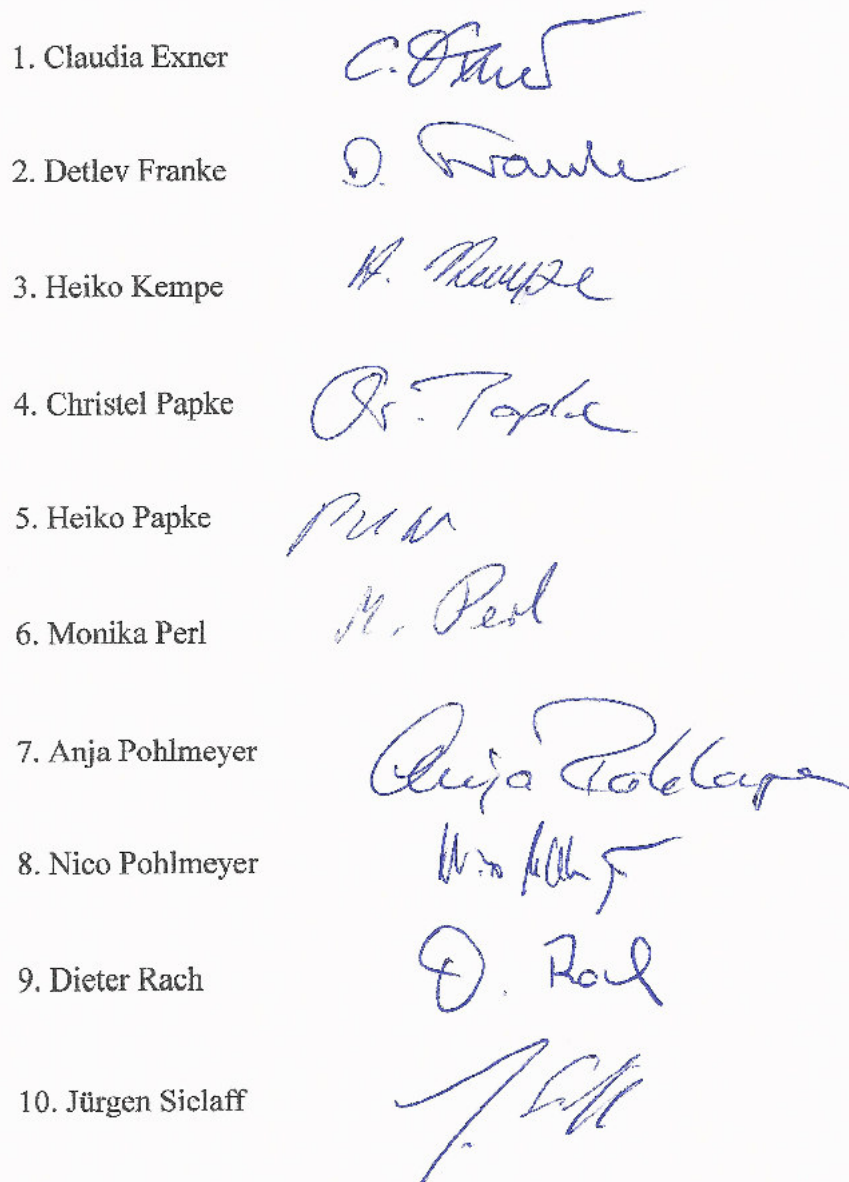 1. Claudia Exner C. Exner
2. Detlev Franke D. Franke
3. Heiko Kempe H. Kempe
4. Christel Papke Chr. Papke
5. Heiko Papke
6. Monika Perl M. Perl
7. Anja Pohlmeyer Anja Pohlmeyer
8. Nico Pohlmeyer Nico
9. Dieter Rach D. Rach
10. Jürgen Sielaff J.